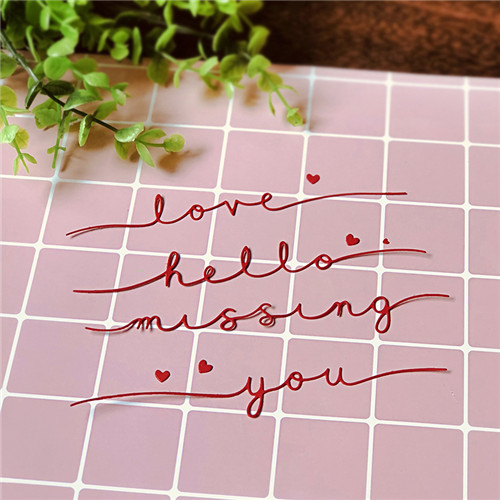 love
hello
missing
you